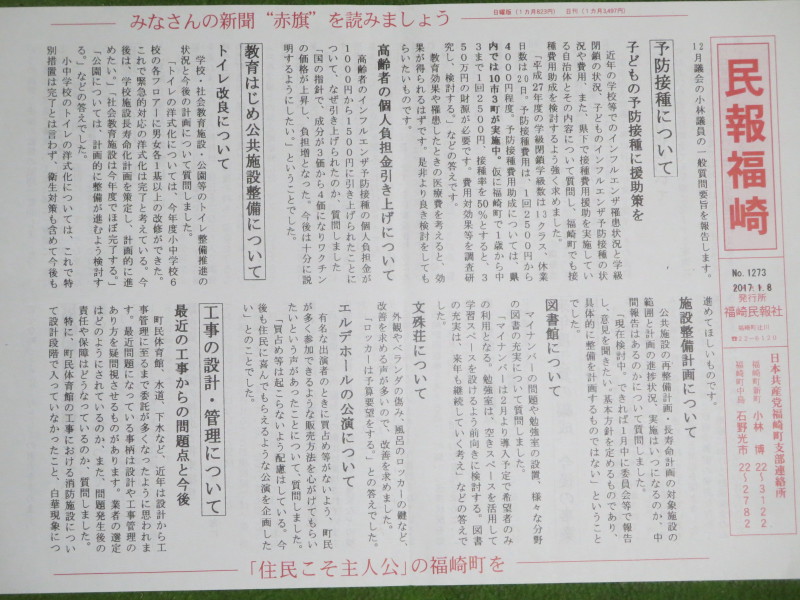 みなさんの新聞“赤旗”を読みましょう
日曜版(1カ月823円) 日刊(1カ月3497円)
民報福崎
No.1273
2017.1.8
発行所
福崎民報社
福崎町辻川
☎22-6120
日本共産党福崎町支部連絡所
福崎町新町 小林 博 22-3122
福崎町中島 石野光市 22-2782
12月議会の小林議員の一般質問要旨を報告します。
予防接種について
子どもの予防接種に援助策を
近年の学校等でのインフルエンザ罹患状況と学級
閉鎖の状況、子どものインフルエンザ予防接種の状
況や費用、また、県下で接種費用援助を実施してい
る自治体とその内容について質問し、福崎町でも接
種費用助成を検討するよう強く求めました。
「平成27年度の学級閉鎖学級数は13クラス、休業
日数は20日。予防接種費用は、1回2500円から
4000円程度。予防接種費用助成については、県
内では10市3町が実施中。仮に福崎町で1歳から中
3まで1回2500円、接種率を50%とすると、3
50万円の財源が必要です。費用対効果等を調査研
究し、検討する。」などの答えです。
教育効果や罹患したときの医療費を考えると、効
果が得られるはずです。是非より良き検討をしても
らいたいものです。
高齢者の個人負担金引き上げについて
高齢者のインフルエンザ予防接種の個人負担金が
1000円から1500円に引き上げられたことに
ついて、なぜ引き上げられたのか、質問しました
「国の指針で、成分が3価から4価になりワクチン
の価格が上昇し、負担増となった。今後は十分に説
明するようにしたい。」ということでした。
教育はじめ公共施設整備について
トイレ改良について
学校・社会教育施設・公園等のトイレ整備推進の
状況と今後の計画について質問しました。
「トイレの洋式化については、今年度小中学校6
校の各フロアーに男女各1基以上の改修ができた。
これで緊急的対応の洋式化は完了と考えている。今
後は、学校施設長寿命化計画を策定し、計画的に進
めたい。」「社会教育施設は今年度でほぼ完了する。」
「公園については、計画的に整備が進むよう検討す
る。」などの答えでした。
小中学校のトイレの洋式化については、これで特
別措置は完了とは言わず、衛生対策も含めて今後も
進めてほしいものです。
施設整備計画について
公共施設の再整備計画・長寿命計画の対象施設の
範囲と計画の進捗状況、実施はいつになるのか、中
間報告はあるのかについて質問しました。
「現在検討中。できれば1月中に委員会等で報告
し、意見を聞きたい。基本方針を定めるものであり、
具体的に整備を計画するものではない」ということ
でした。
図書館について
マイナンバーの問題や勉強室の設置、様々な分野
の図書の充実について質問しました。
「マイナンバーは2月より導入予定で希望者のみ
の利用となる。勉強室は、空きスペースを活用して
学習スペースを設けるよう前向きに検討する。図書
の充実は、来年も継続していく考え」などの答えで
した。
文殊荘について
外観やベランダの傷み、風呂のロッカーの鍵など、
改善を求める声が多いので、改善を求めました。
「ロッカーは予算要望をする。」との答えでした。
エルデホールの公演について
有名な出演者のときに買占め等がないよう、町民
が多く参加できるような販売方法を心がけてもらい
たいという声があったことについて、質問しました。
「買占め等は起こらないよう配慮はしている。今
後も住民に喜んでもらえるような公演を企画した
い」とのことでした。
工事の設計・管理について
最近の工事からの問題点と今後
町民体育館、水道、下水など、近年は設計から工
事管理に至るまで委託が多くなったように思われま
す。最近問題になっている事柄は設計や工事管理の
あり方を疑問視させるものがあります。業者の選定
はどのようにされているのか、また、問題発生後の
責任や保障はどうなっているのか、質問しました。
特に、町民体育館の工事における消防施設につい
て設計段階で入っていなかったこと、白華現象につ
「住民こそ主人公」の福崎町を